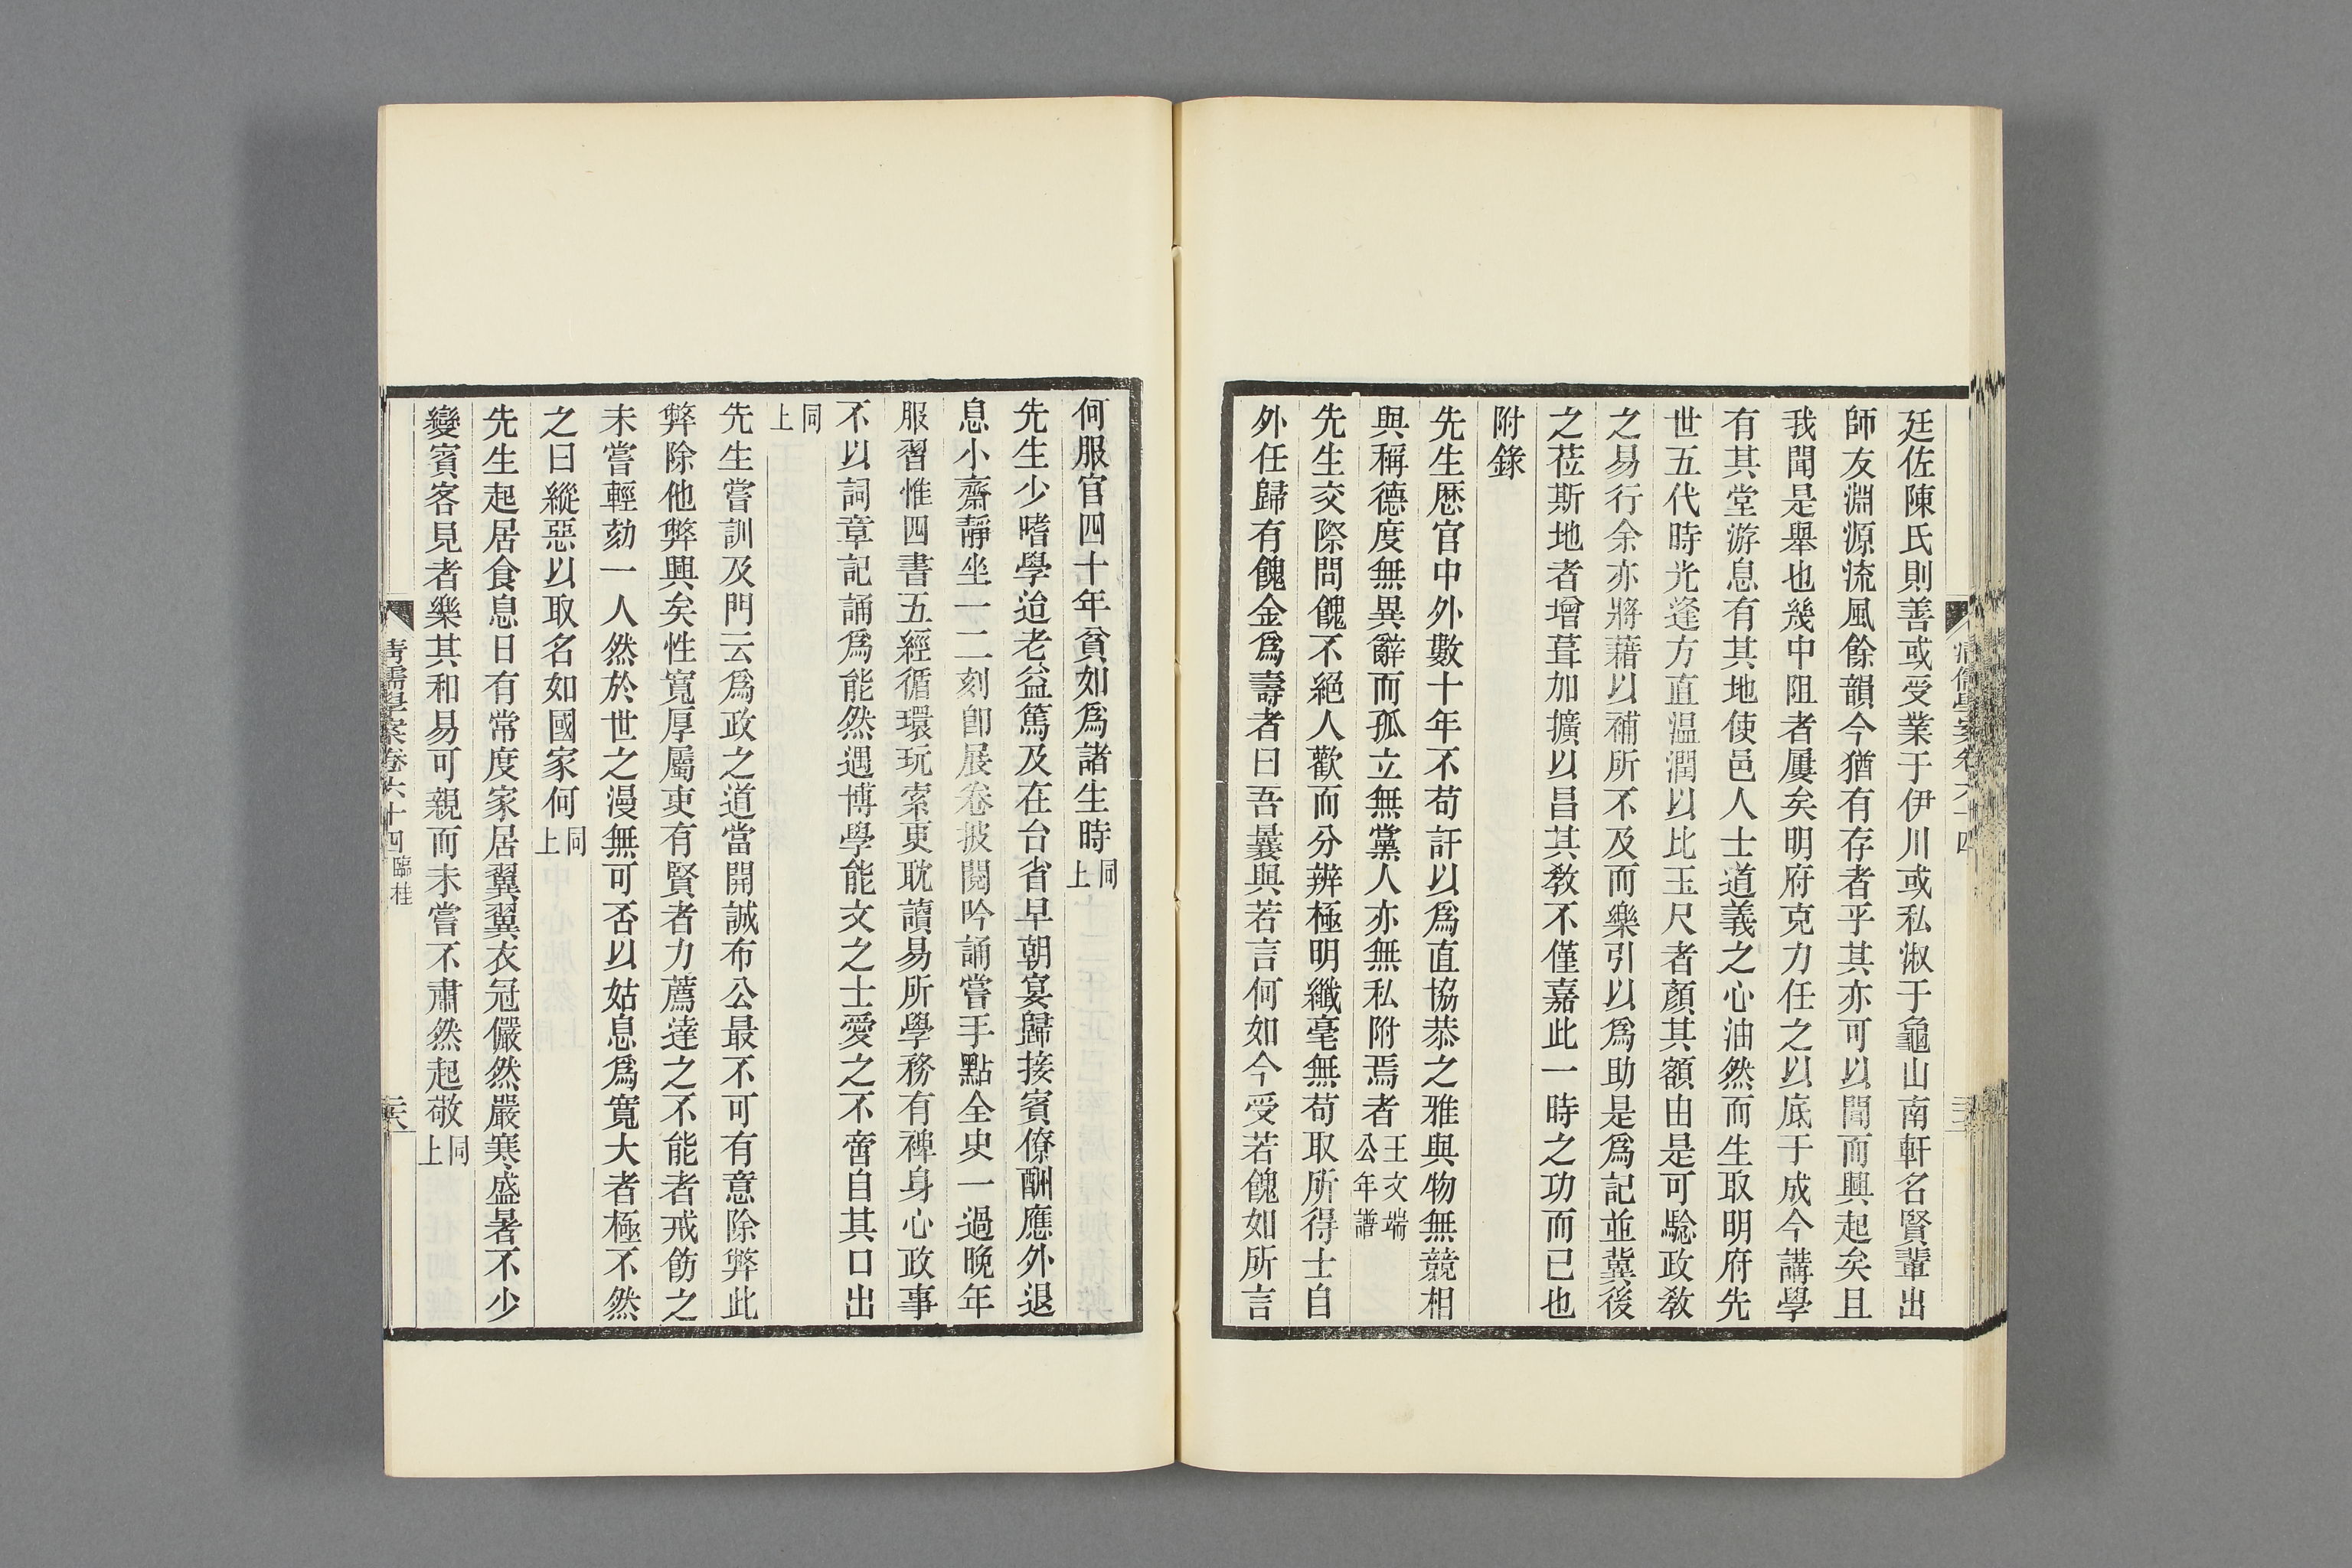 廷佐陳氏則善或受業于伊川或私淑于龜山南軒名賢輩出
師友淵源流風餘韻今猶有存者乎其亦可以聞而興起矣且
我聞是舉也幾中阻者屢矣明府克力任之以底于成今講學
有其堂游息有其地使邑人士道義之心油然而生取明府先
世五代時光逢方直温潤以比玉尺者顏其額由是可驗政教
之易行余亦將藉以補所不及而樂引以爲助是爲記並冀後
之莅斯地者增葺加擴以昌其教不僅嘉此一時之功而已也
附錄
先生歷官中外數十年不苟訐以爲直協恭之雅與物無競相
與稱德度無異辭而孤立無黨人亦無私附焉者王文端公年譜
先生交際問餽不絕人歡而分辨極明纖毫無苟取所得士自
外任歸有餽金爲壽者曰吾曩與若言何如今受若餽如所言
何服官四十年貧如爲諸生時同上
先生少嗜學迨老益篤及在台省早朝宴歸接賓僚酬應外退
息小齋靜坐一二刻卽展卷披閱吟誦嘗手點全史一過晚年
服習惟四書五經循環玩索更耽讀易所學務有裨身心政事
不以詞章記誦爲能然遇博學能文之士愛之不啻自其口出
同上
先生嘗訓及門云爲政之道當開誠布公最不可有意除弊此
弊除他弊興矣性寬厚屬吏有賢者力薦達之不能者戒飭之
未嘗輕劾一人然於世之漫無可否以姑息爲寬大者極不然
之曰縱惡以取名如國家何同上
先生起居食息日有常度家居翼翼衣冠儼然嚴寒盛暑不少
變賓客見者樂其和易可親而未嘗不肅然起敬同上
清儒學案卷六十四 臨桂